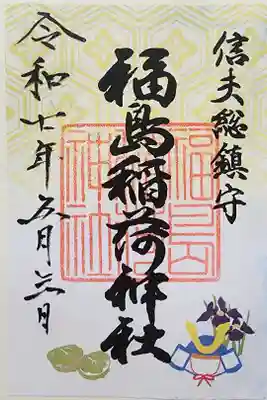 信夫総鎮守
福島稲荷神社
令和七年五月三日